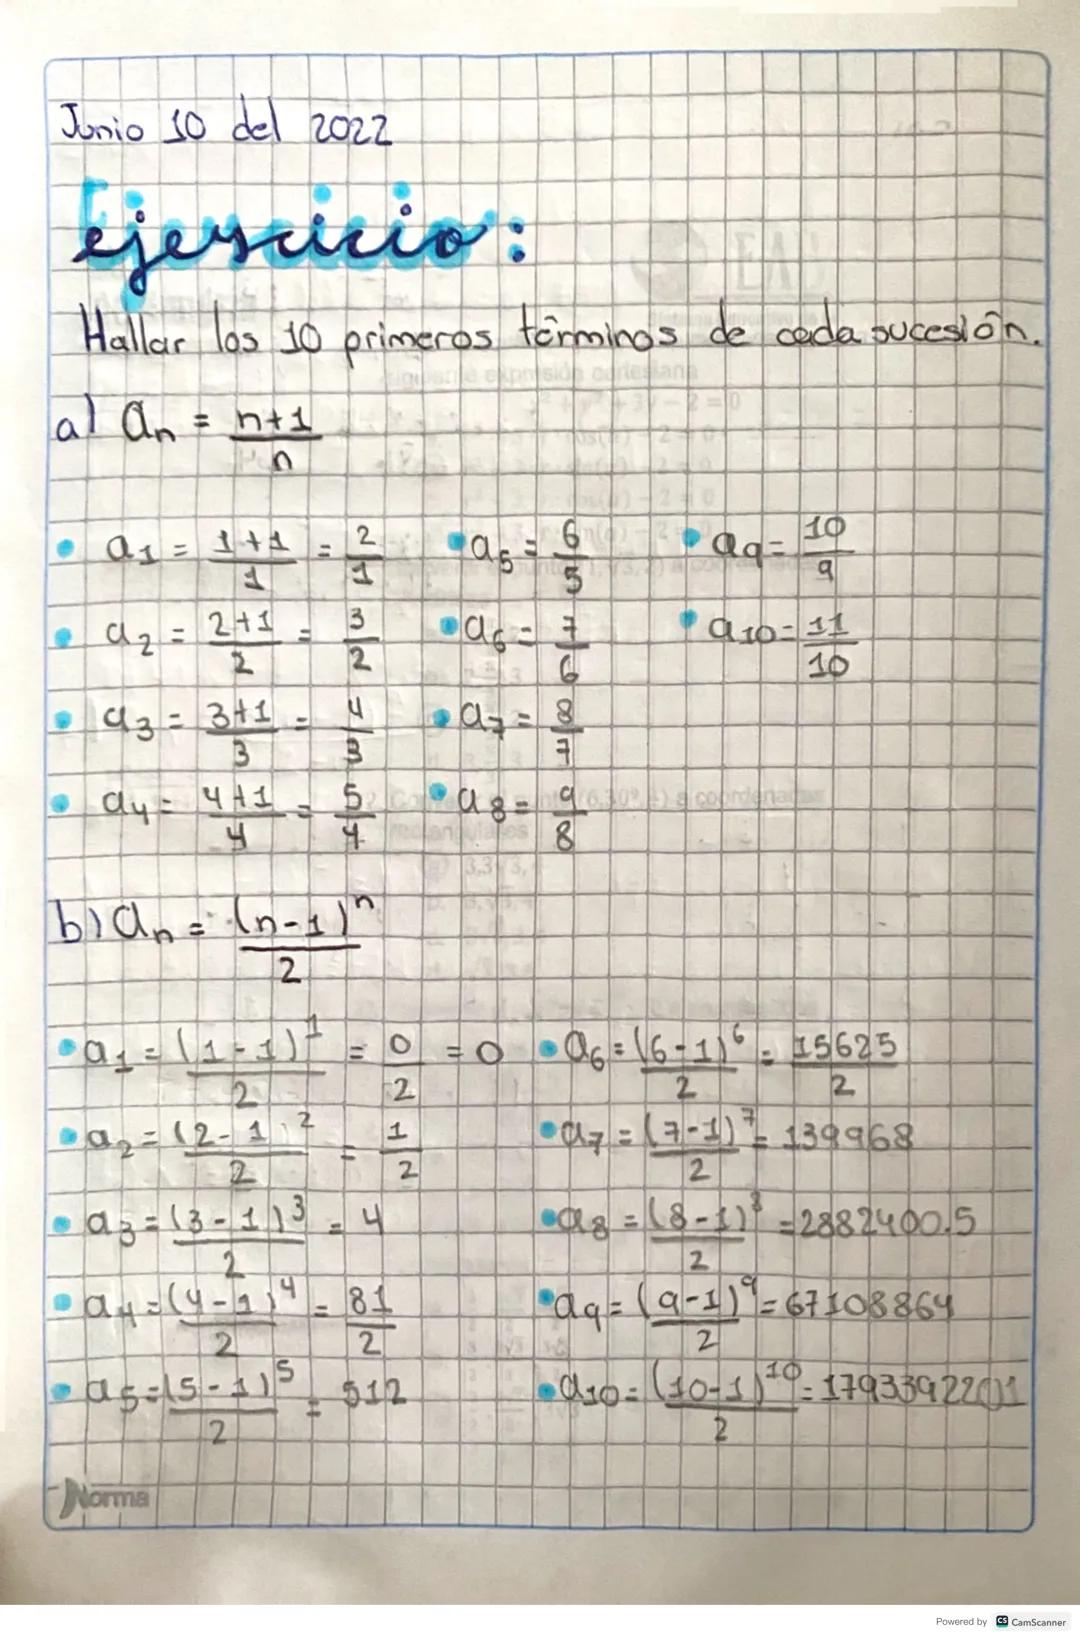 Junio 10 del 2022
ejercicio:
Hallar los 10 primeros términos de cada sucesión.
a) an = n+1/n
• a1 = 1+1/1 = 2/1
• a2 = 2+1/2 = 3/2
• a3 = 3+1/3 = 4/3
• a4 = 4+1/4 = 5/4
• a5 = 6/5
• a6 = 7/6
• a7 = 8/7
• a8 = 9/8
• a9 = 10/9
• a10 = 11/10
b) an = (n-1)^n/2
• a1 = (1-1)^1/2 = 0/2 = 0
• a2 = (2-1)^2/2 = 1/2
• a3 = (3-1)^3/2 = 4
• a4 = (4-1)^4/2 = 81/2
• a5 = (5-1)^5/2 = 512
• a6 = (6-1)^6/2 = 15625/2
• a7 = (7-1)^7/2 = 139968
• a8 = (8-1)^8/2 = 2882400.5
• a9 = (9-1)^9/2 = 67108864
• a10 = (10-1)^10/2 =
Norma
Powered by CS CamScanner